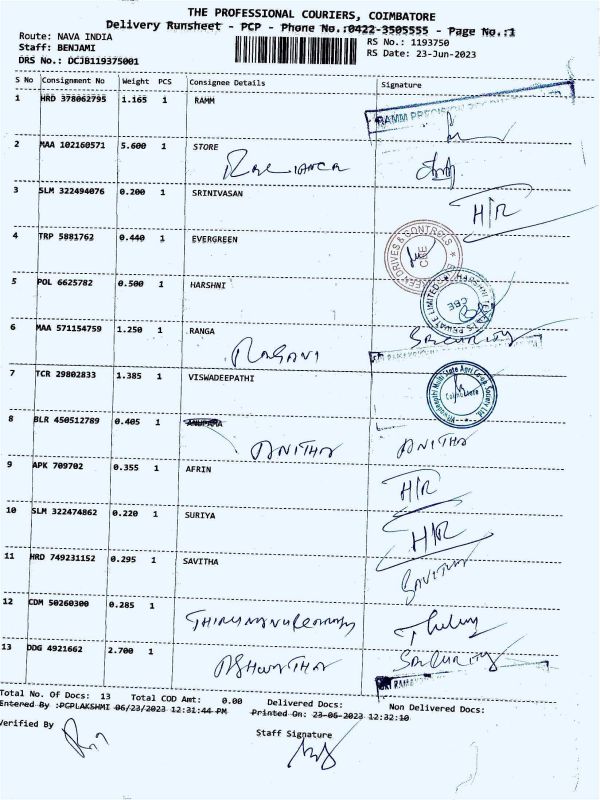 THE PROFESSIONAL COURIERS, COIMBATORE
Delivery Runsheet - PCP - Phone No.:0422-3505555 - Page No.:1
Route: NAVA INDIA
RS No.: 1193750
Staff: BENJAMI
RS Date: 23-Jun-2023
DRS No.: DCJB119375001
S No Consignment No Weight PCS Consignee Details Signature
1 HRD 378062795 1.165 1 RAMM
RAMM PRECISION
2 MAA 102160571 5.600 1 STORE
3 SLM 322494076 0.200 1 SRINIVASAN H/R
4 TRP 5881762 0.440 1 EVERGREEN
DRIVES & CONTROLS CBE
5 POL 6625782 0.500 1 HARSHNI
PRIVATE LIMITED CBE
6 MAA 571154759 1.250 1 RANGA Security
7 TCR 29802833 1.385 1 VISWADEEPATHI
Multi State Agri
8 BLR 450512789 0.405 1 ANUPAMA
ANITHA ANITHA
9 APK 709702 0.355 1 AFRIN H/R
10 SLM 322474862 0.220 1 SURIYA H/R
11 HRD 749231152 0.295 1 SAVITHA SAVITHA
12 CDM 50260300 0.285 1
13 DDG 4921662 2.700 1 ASHWATHA Security
Total No. Of Docs: 13 Total COD Amt: 0.00 Delivered Docs: Non Delivered Docs:
Entered By :PCPLAKSHMI 06/23/2023 12:31:44 PM Printed On: 23-06-2023 12:32:10
Verified By
Staff Signature